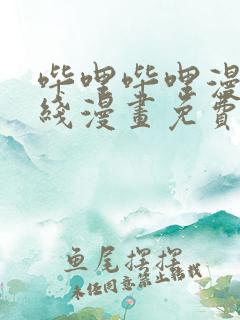 哔哩哔哩漫
线漫画免费
鱼尾摆摆
未经同意禁止转载